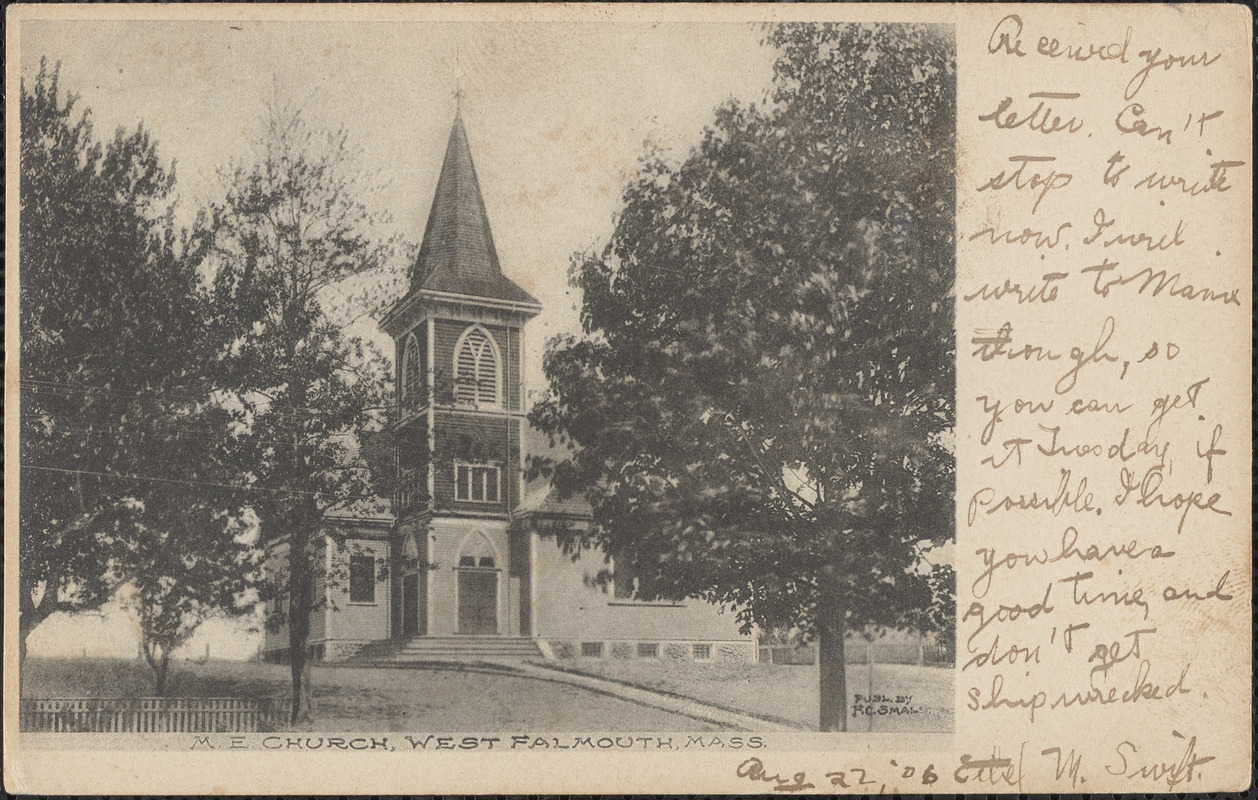 Received your
letter. Can't
stop to write
now. I will
write to Mamie
though, so
you can get
it Tuesday, if
possible. I hope
you have a
good time, and
don't get
shipwrecked.
PUBL. BY
F.C. SMALL
M. E. CHURCH, WEST FALMOUTH, MASS.
Aug 22, '06 M. Swift.